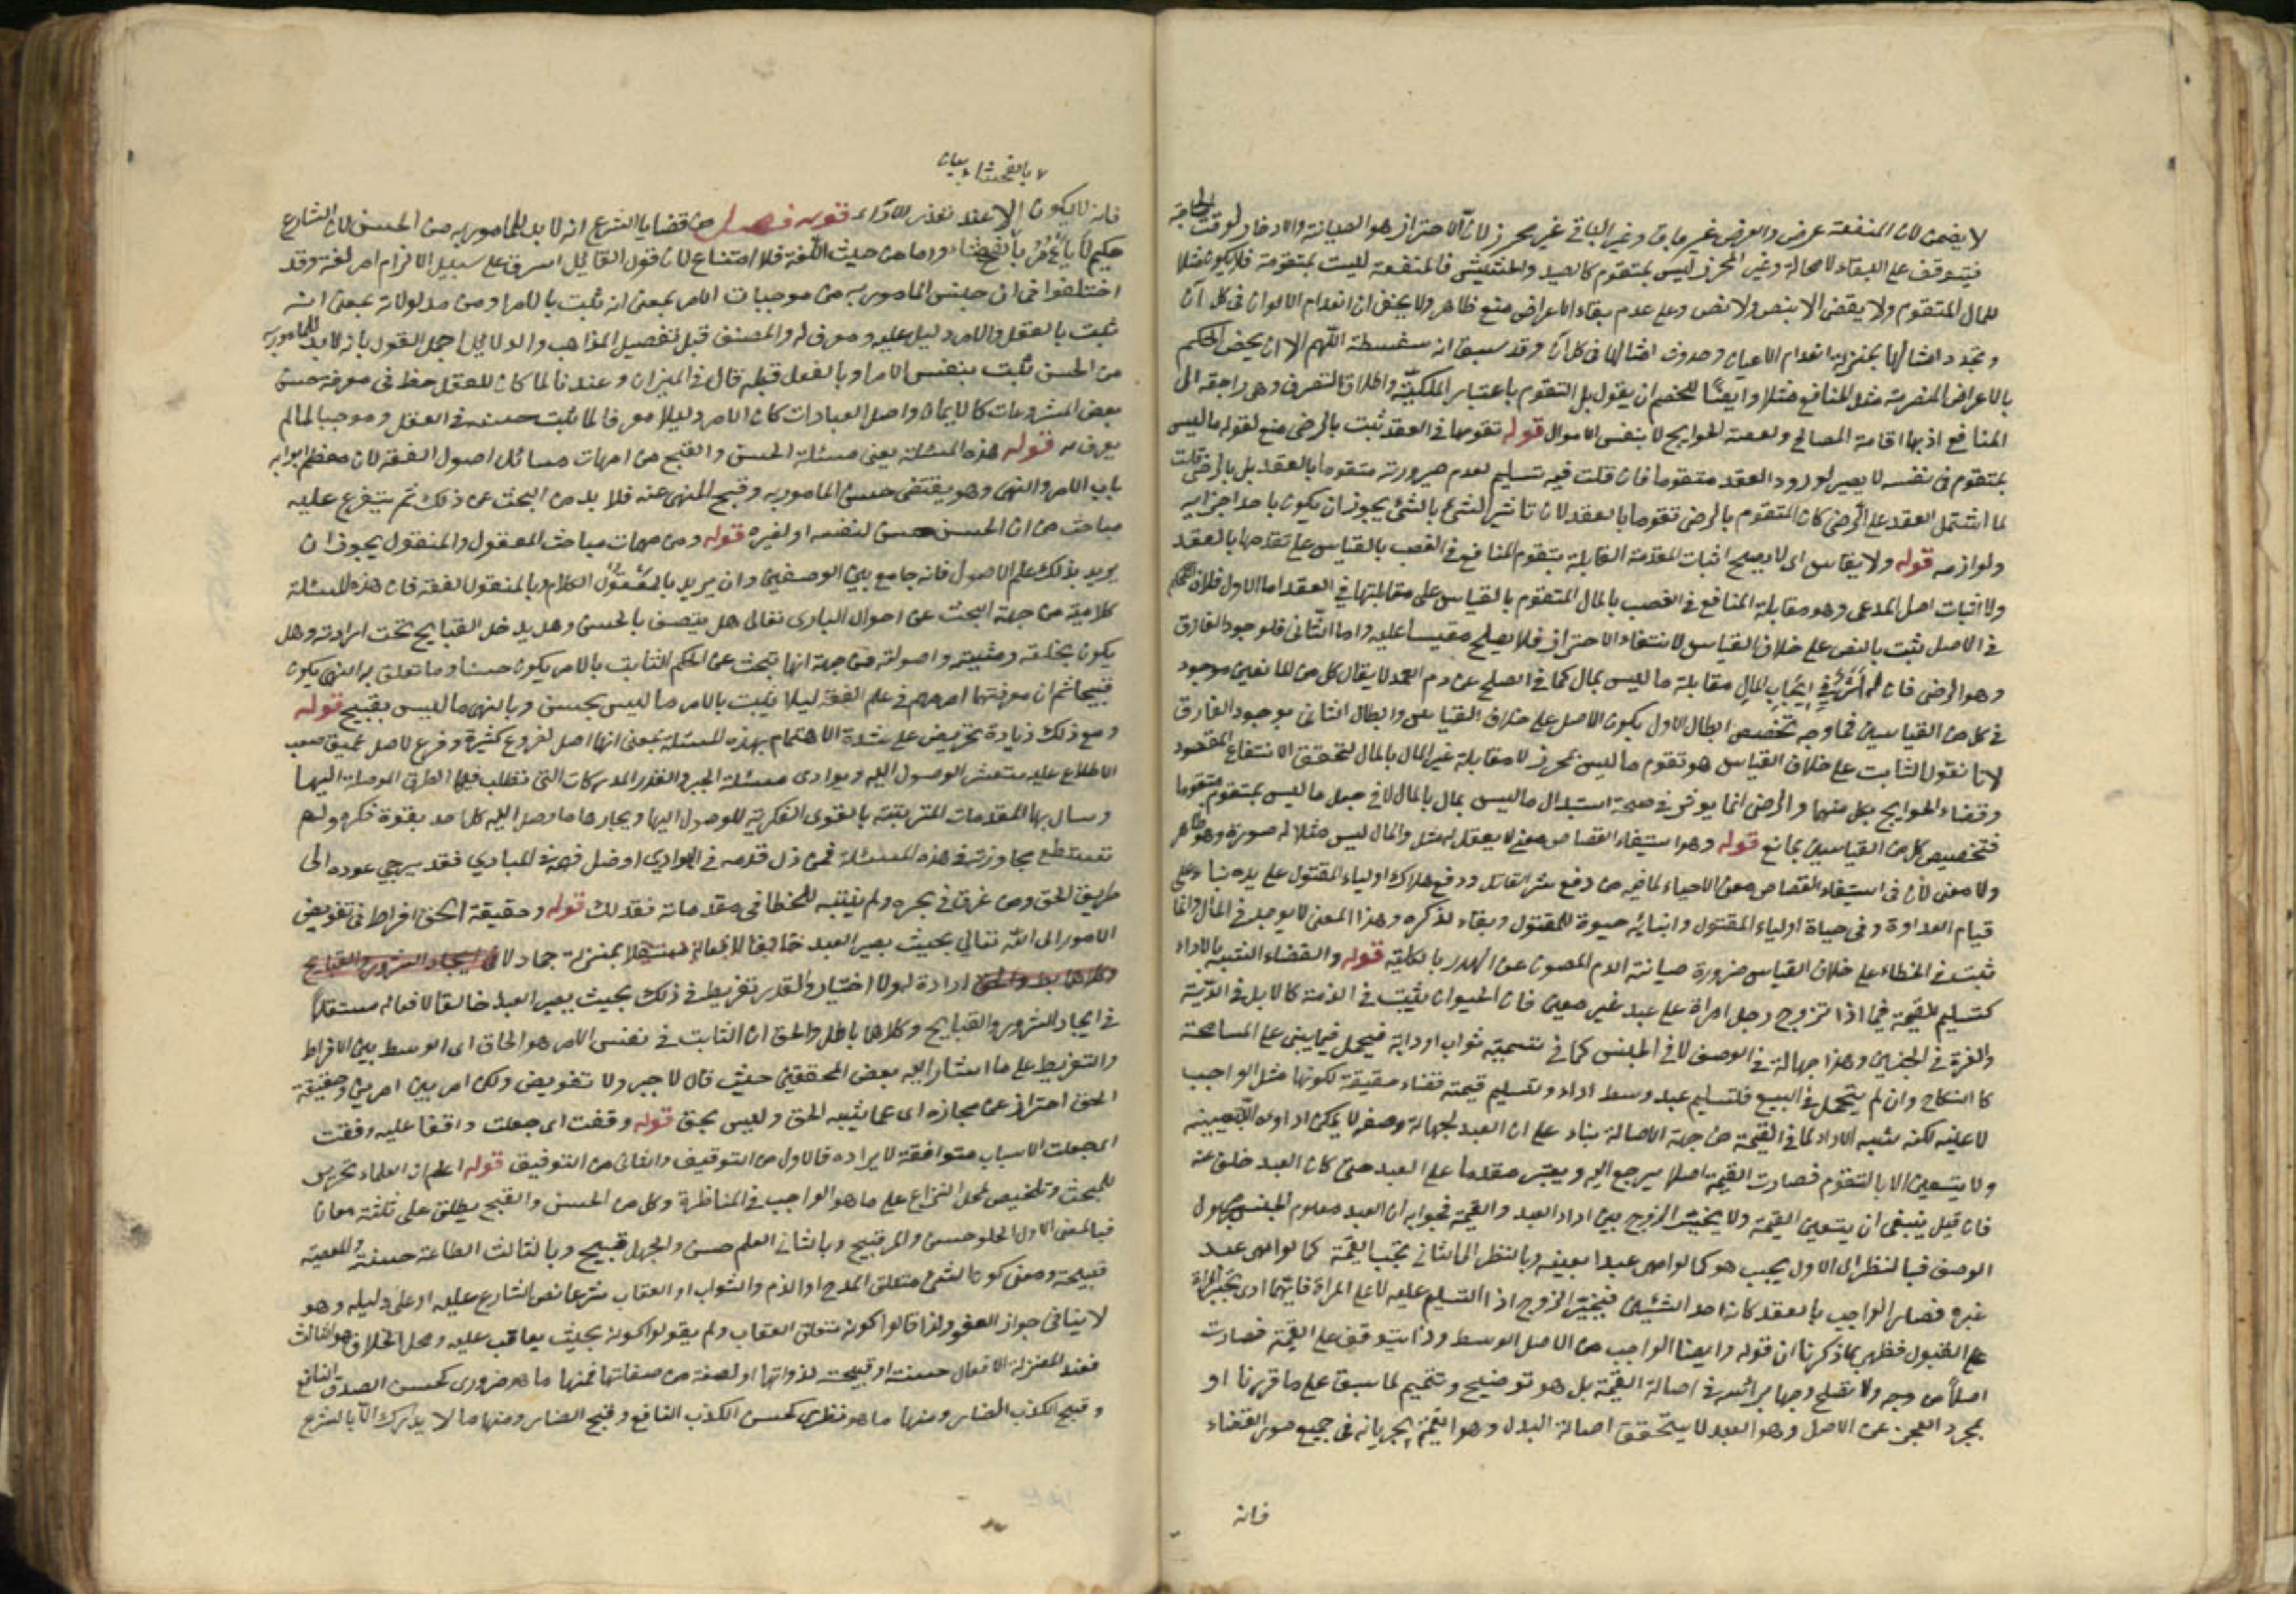 لا يضمن لان المنفعة عرض والعرض غير باق وغير الباقي غير محرز لان الاحتراز هو الصيانة والادخار لوقت الحاجة
فيتوقف على البقاء لا محالة وغير المحرز ليس بمتقوم كالصيد والحشيش فالمنفعة ليست بمتقومة فلا يكون مثلا
للمال المتقوم ولا يقضى الا بنص ولا نص وعلى عدم بقاء الاعراض منع ظاهر ولا يخفى ان انعدام الالوان في كل آن
وتجدد امثالها بمنزلة انعدام الاعيان وحدوث امثالها في كل آن وقد سبق انه سفسطة اللهم الا ان يخص الحكم
بالاعراض المنصرمة مثل المنافع مثلا وايضا للخصم ان يقول بل التقوم باعتبار الملكية واطلاق التصرف وهي راجعة الى
المنافع اذ بها اقامة المصالح وقضاء الحوايج لا بنفس الاموال قوله تقومها في العقد ثبت بالرضى منع لقوله ما ليس
بمتقوم في نفسه لا يصير لورود العقد متقوما فان قلت فيه تسليم لعدم صيرورته متقوما بالعقد بل بالرضى قلت
لما اشتمل العقد على الرضى كان المتقوم بالرضى تقوما بالعقد لان تاثير الشئ بالشئ يجوز ان يكون باحد اجزائه
ولوازمه قوله ولا يقاس اى لا يصح اثبات المقدمة القابلة بتقوم المنافع في الغصب بالقياس على تقدمها بالعقد
ولا اثبات اصل المدعى وهو مقابلة المنافع في الغصب بالمال المتقوم بالقياس على مقابلتها في العقد اما الاول فلان الحكم
في الاصل يثبت بالنص على خلاف القياس لانتفاء الاحتراز فلا يصلح مقيسا عليه واما الثانى فلوجود الفارق
وهو الرضى فان له اثرا في ايجاب المال مقابلة ما ليس بمال كما في الصلح عن دم العمد لا يقال كل من المانعين موجود
في كل من القياسين فما وجه تخصيص ابطال الاول بكون الاصل على خلاف القياس وابطال الثانى بوجود الفارق
لانا نقول الثابت على خلاف القياس هو تقوم ما ليس بمحرز لا مقابلة غير المال بالمال لتحقق الانتفاع المقصود
وقضاء الحوايج بكل منهما والرضى انما يوثر في صحة استبدال ما ليس بمال بالمال لا في جعل ما ليس بمتقوم متقوما
فتخصيص كل من القياسين بمانع قوله وهو استيفاء القصاص معنى لا يعقل له مثل والمال ليس مثلا له صورة وهو ظاهر
ولا معنى لان في استيفاء القصاص معنى الاحياء لما فيه من دفع شر القاتل ودفع هلاك اولياء المقتول على يده بناء على
قيام العداوة وفي حياة اولياء المقتول وابنائه حيوة للمقتول وبقاء لذكره وهذا المعنى لا يوجد في المال وانما
ثبتت في الخطاء على خلاف القياس ضرورة صيانة الدم المصون عن الهدر بالكلية قوله والقضاء الشبيه بالاداء
كتسليم القيمة فيما اذا تزوج رجل امراة على عبد غير معين فان الحيوان يثبت في الذمة كالابل في الدية
والغرة في الجنين وهذا جهالة في الوصف لا في الجنس كما في تسمية ثوب او دابة فيحمل فيما يبنى على المسامحة
كالنكاح وان لم يتحمل في البيع فلتسليم عبد وسط اداء وتسليم قيمته قضاء حقيقة لكونها مثل الواجب
لا عينه لكنه شبه الاداء لما في القيمة من جهة الاصالة بناء على ان العبد لجهالة وصفه لا يمكن اداؤه الا بتعيينه
ولا يتعين الا بالتقوم فصارت القيمة اصلا يرجع اليه ويعتبر مقدما على العبد حتى كان العبد خلف عنه
فان قيل ينبغى ان يتعين القيمة ولا يخير الزوج بين اداء العبد والقيمة فجوابه ان العبد معلوم الجنس مجهول
الوصف فبالنظر الى الاول يجب هو كما لو امهر عبدا بعينه وبالنظر الى الثانى تجب القيمة كما لو امهر عبد
غيره فصار الواجب بالعقد كانه احد الشيئين فيخير الزوج اذ التسليم عليه لا على المراة فايهما ادى يجبر المراة
على القبول فظهر بما ذكرنا ان قوله وايضا الواجب من الاصل الوسط وذا يتوقف على القيمة فصارت
اصلا من وجه ولا تصلح وجها براسه في اصالة القيمة بل هو توضيح وتتميم لما سبق على ما قررنا او
بمجرد العجز عن الاصل وهو العبد لا يتحقق اصالة البدل وهو القيمة لجريانه في جميع صور القضاء
فانه
بالفحشاء بيان
فانه لا يكون الا عند تعذر الاداء قوله فصل من قضايا الشرع انه لا بد للمامور به من الحسن لان الشارع
حكيم لا يامر بالفحشاء واما من حيث اللغة فلا امتناع لان قول القائل اسرق على سبيل الالزام امر لغة وقد
اختلفوا في ان حسن المامور به من موجبات الامر بمعنى انه ثبت بالامر او من مدلولاته بمعنى انه
ثبت بالعقل والامر دليل عليه ومعرف له والمصنف قبل تفصيل المذاهب والدلايل اجمل القول بانه لا بد للمامور به
من الحسن ثبت بنفس الامر او بالعقل قبله قال في الميزان وعندنا لما كان للعقل حظ في معرفة حسن
بعض المشروعات كالايمان واصل العبادات كان الامر دليلا معرفا لما ثبت حسنه في العقل وموجبا لما لم
يعرف به قوله هذه المسئلة يعنى مسئلة الحسن والقبح من امهات مسائل اصول الفقه لان معظم ابوابه
باب الامر والنهى وهو يقتضى حسن المامور به وقبح المنهى عنه فلا بد من البحث عن ذلك ثم يتفرع عليه
مباحث من ان الحسن حسن لنفسه او لغيره قوله ومن مهمات مباحث المعقول والمنقول يجوز ان
يريد بذلك علم الاصول فانه جامع بين الوصفين وان يريد بالمعقول الكلام وبالمنقول الفقه فان هذه المسئلة
كلامية من جهة البحث عن احوال البارى تعالى هل يتصف بالحسن وهل يدخل القبايح تحت ارادته وهل
يكون بخلقه ومشيته واصولية من جهة انها تبحث عن الحكم الثابت بالامر يكون حسنا وما تعلق به النهى يكون
قبيحا ثم ان معرفتها امر مهم في علم الفقه ليلا يثبت بالامر ما ليس بحسن وبالنهى ما ليس بقبيح قوله
ومع ذلك زيادة تحريض على شدة الاهتمام بهذه المسئلة بمعنى انها اصل لفروع كثيرة وفرع لاصل عميق صعب
الاطلاع عليه متعسر الوصول اليه وبوادى مسئلة الجبر والقدر المدركات التى تطلب فيها الطرق الموصلة اليها
ورسال بها المقدمات المترتبة بالقوى الفكرية للوصول اليها وبحارها ما وصل اليه كل احد بقوة فكره ولم
تستطع مجاوزته في هذه المسئلة فمن زل قدمه في البوادي او ضل فهمه في المبادي فقد يرجى عوده الى
طريق الحق ومن غرق في بحره ولم يتنبه للخطا في مقدماته فقد هلك قوله وحقيقة الحق افراط في تفويض
الامور الى الله تعالي بحيث يصير العبد بمنزلة جماد لا
ارادة له ولا اختيار والقدر تفريط في ذلك بحيث يصير العبد خالقا لافعاله مستقلا
في ايجاد الشرور والقبايح وكلاهما باطل والحق ان الثابت في نفس الامر هو الحاق اى الوسط بين الافراط
والتفريط على ما اشار اليه بعض المحققين حيث قال لا جبر ولا تفويض ولكن امر بين امرين وحقيقة
الحق احتراز عن مجازه اى عما يشبه الحق وليس بحق قوله وقفت اى جعلت واقفا عليه وفقت
اى جعلت الاسباب متوافقة لايراده فالاول من التوقيف والثانى من التوفيق قوله اعلم ان العلماء تحرير
للبحث وتلخيص لمحل النزاع على ما هو الواجب في المناظرة وكل من الحسن والقبح يطلق على ثلثة معان
فبالمعنى الاول الحلو حسن والمر قبيح وبالثانى العلم حسن والجهل قبيح وبالثالث الطاعة حسنة والمعصية
قبيحة ومعنى كون الشئ متعلق المدح او الذم والثواب او العقاب شرعا نص الشارع عليه او على دليله وهو
لا ينافى جواز العفو ولذا قالوا كونه متعلق العقاب ولم يقولوا كونه بحيث يعاقب عليه ومحل الخلاف هو الثالث
فعند المعتزلة الافعال حسنة او قبيحة لذواتها او لصفة من صفاتها فمنها ما هو ضرورى كحسن الصدق النافع
وقبح الكذب الضار ومنها ما هو نظرى كحسن الكذب النافع وقبح الضار ومنها ما لا يدرك الا بالشرع